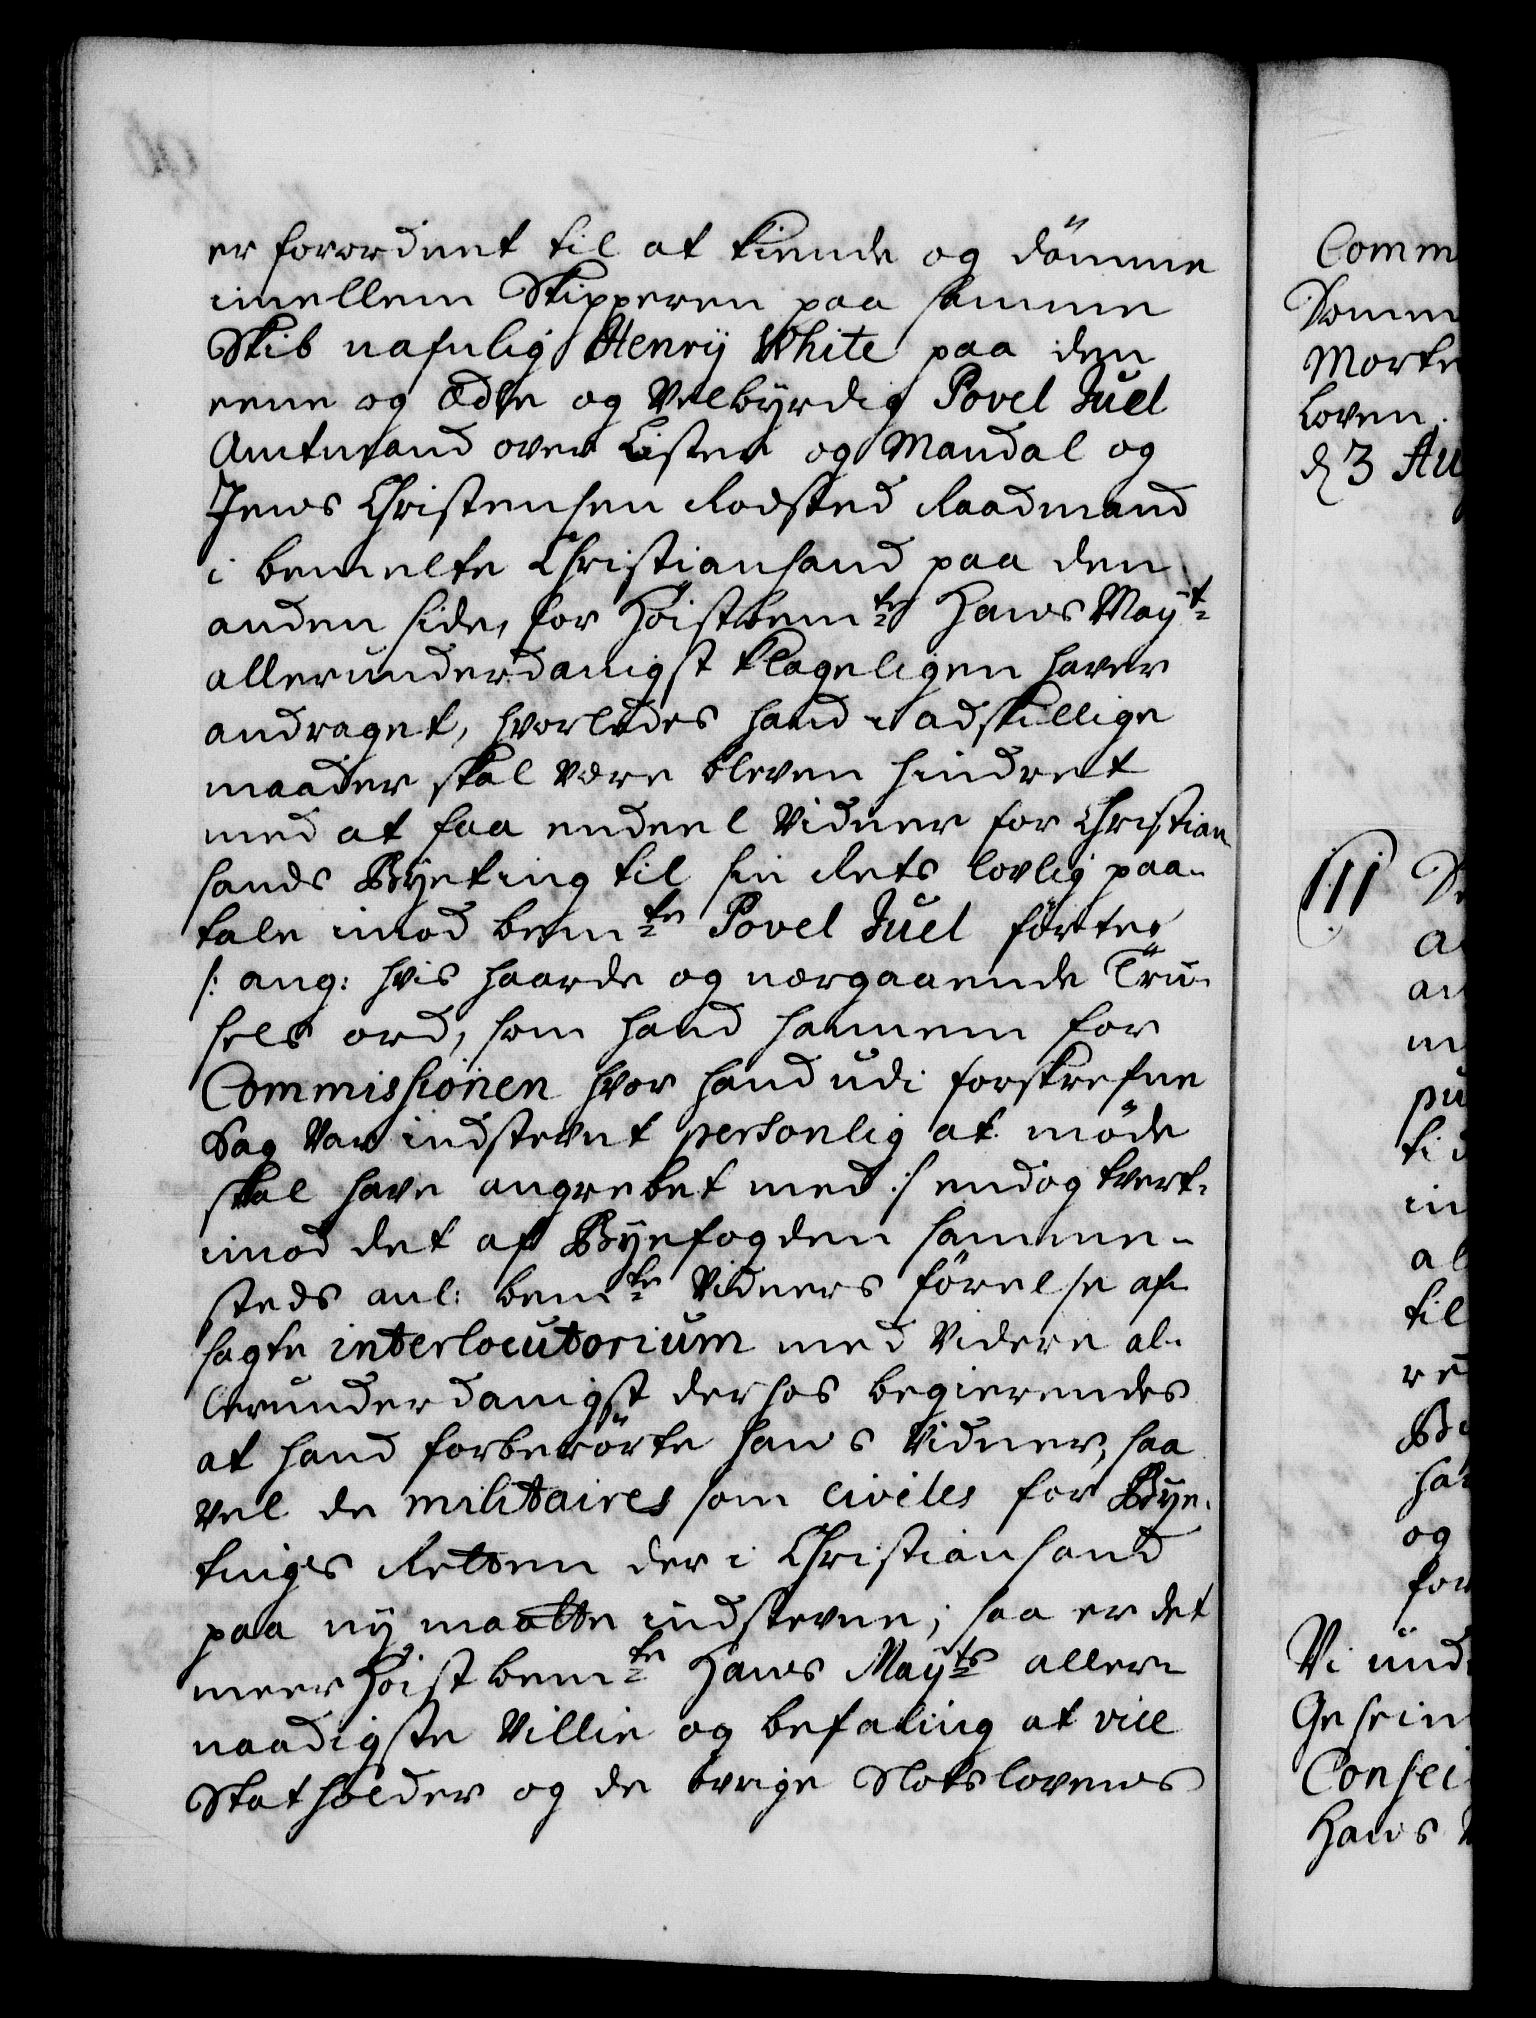 er forordnet til at kiende og dömme
imellem Skipperen paa samme
Skib nafnlig Henrÿ White paa den
eene og Ædle og Velbÿrdig Povel Juel
Amtmand over Lister og Mandal og
Jens Christensen Rodsted Raadmand
i bemelte Christiansand paa den
anden side, for Höistbemte Hans Mayt
allerunderdanigst klageligen haver
andraget, hvorledes hand i adskillige
maader skal være bleven hindret
med at faa endeel Vidner for Christian
sands Bÿeting til sin Rets lovlig paa-
tale imod bemte Povel Juel förte
/: ang: hvis haarde og nærgaaende Trü-
sels ord, som hand hannem for
Commissionen hvor hand udi forskrefne
Sag var indstevnt personlig at möde
skal have angrebet med :/ endog tvert-
imod det af Bÿefogden samme-
steds anl: bemte Vidners förelse af-
sagte interlocutorium med videre al-
lerunderdanigst derhos begierendes
at hand forberörte hans Vidner, saa
vel de militaires som civiles for Bÿe-
tinges Retten der i Christiansand
paa nÿ maatte indstevne; saa er det
meer Höistbemte Hans Mayts aller-
naadigste Villie og befaling at vice
Statholder og de övrige Slotslovens
Comm
Domm
Morte
Loven.
d 3 Au
111
De
a
an
m
pu
tid
in
al
til
re
By
ha
og
for
Vi und
Geheim
Consei
Hans